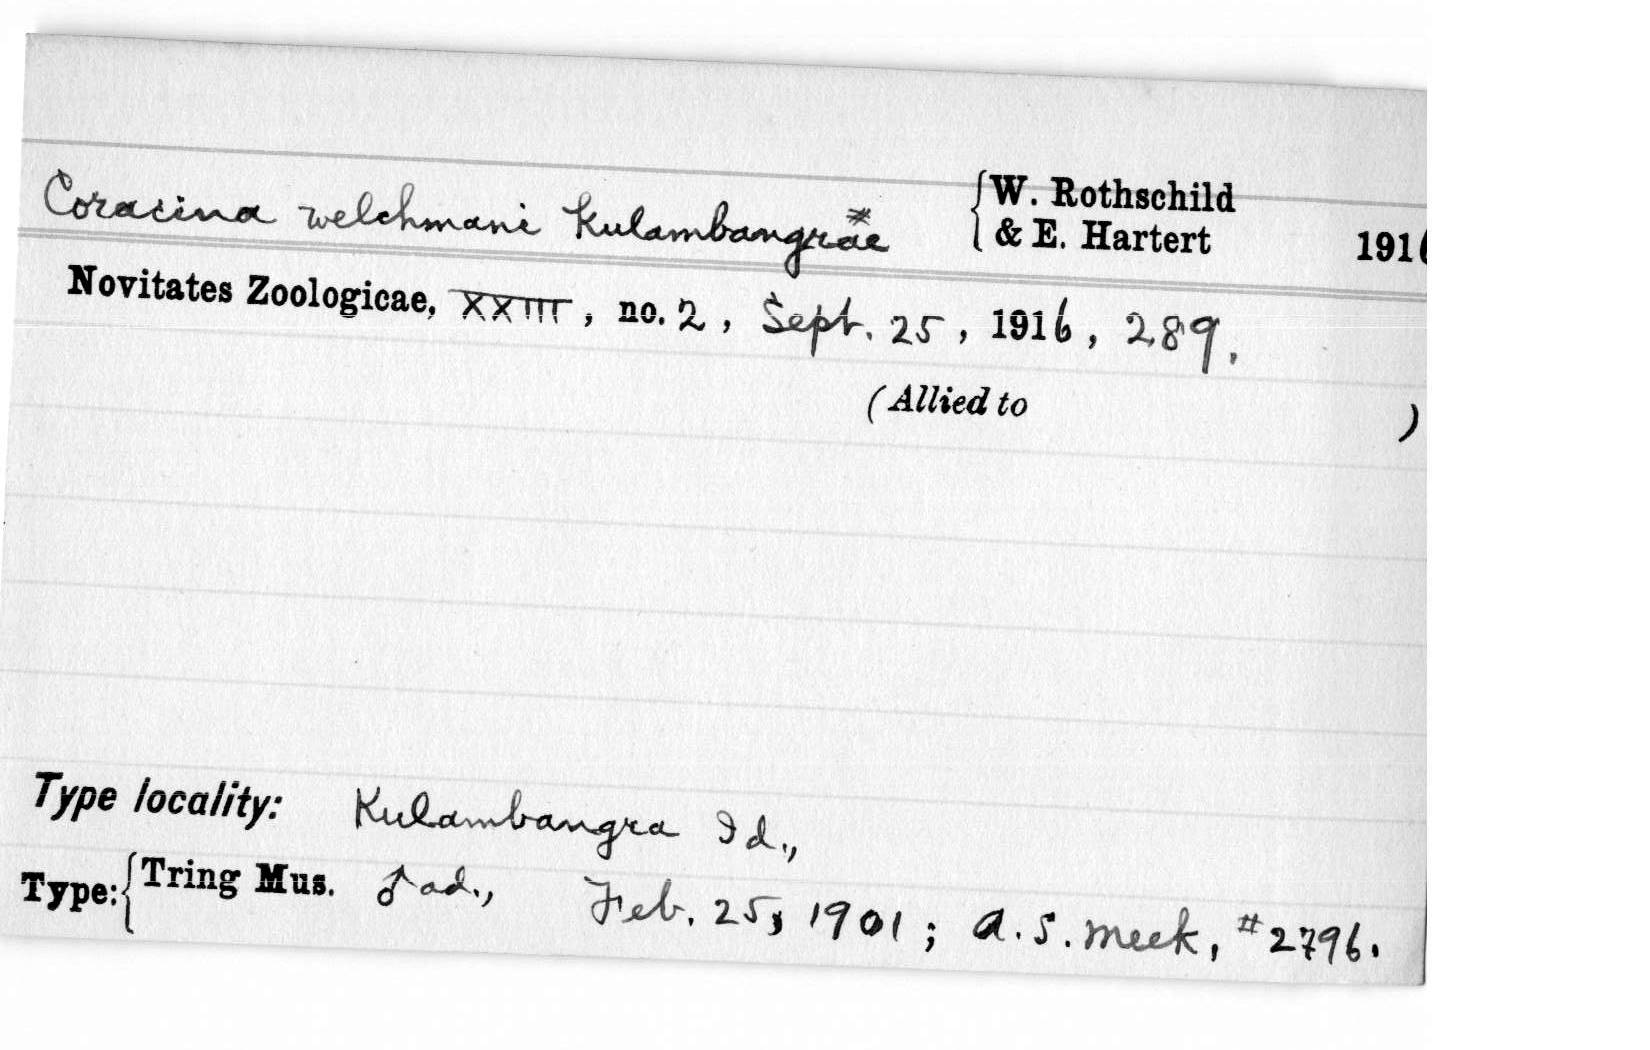 Coracina welchmani kulambangræ # {W. Rothschild & E. Hartert 1916
Novitates Zoologicae, XXIII, no. 2, Sept. 25, 1916, 289.
(Allied to )
Type locality: Kulambangra Id.,
Type: {Tring Mus. ♂ ad., Feb. 25, 1901; A. S. Meek, #2796.